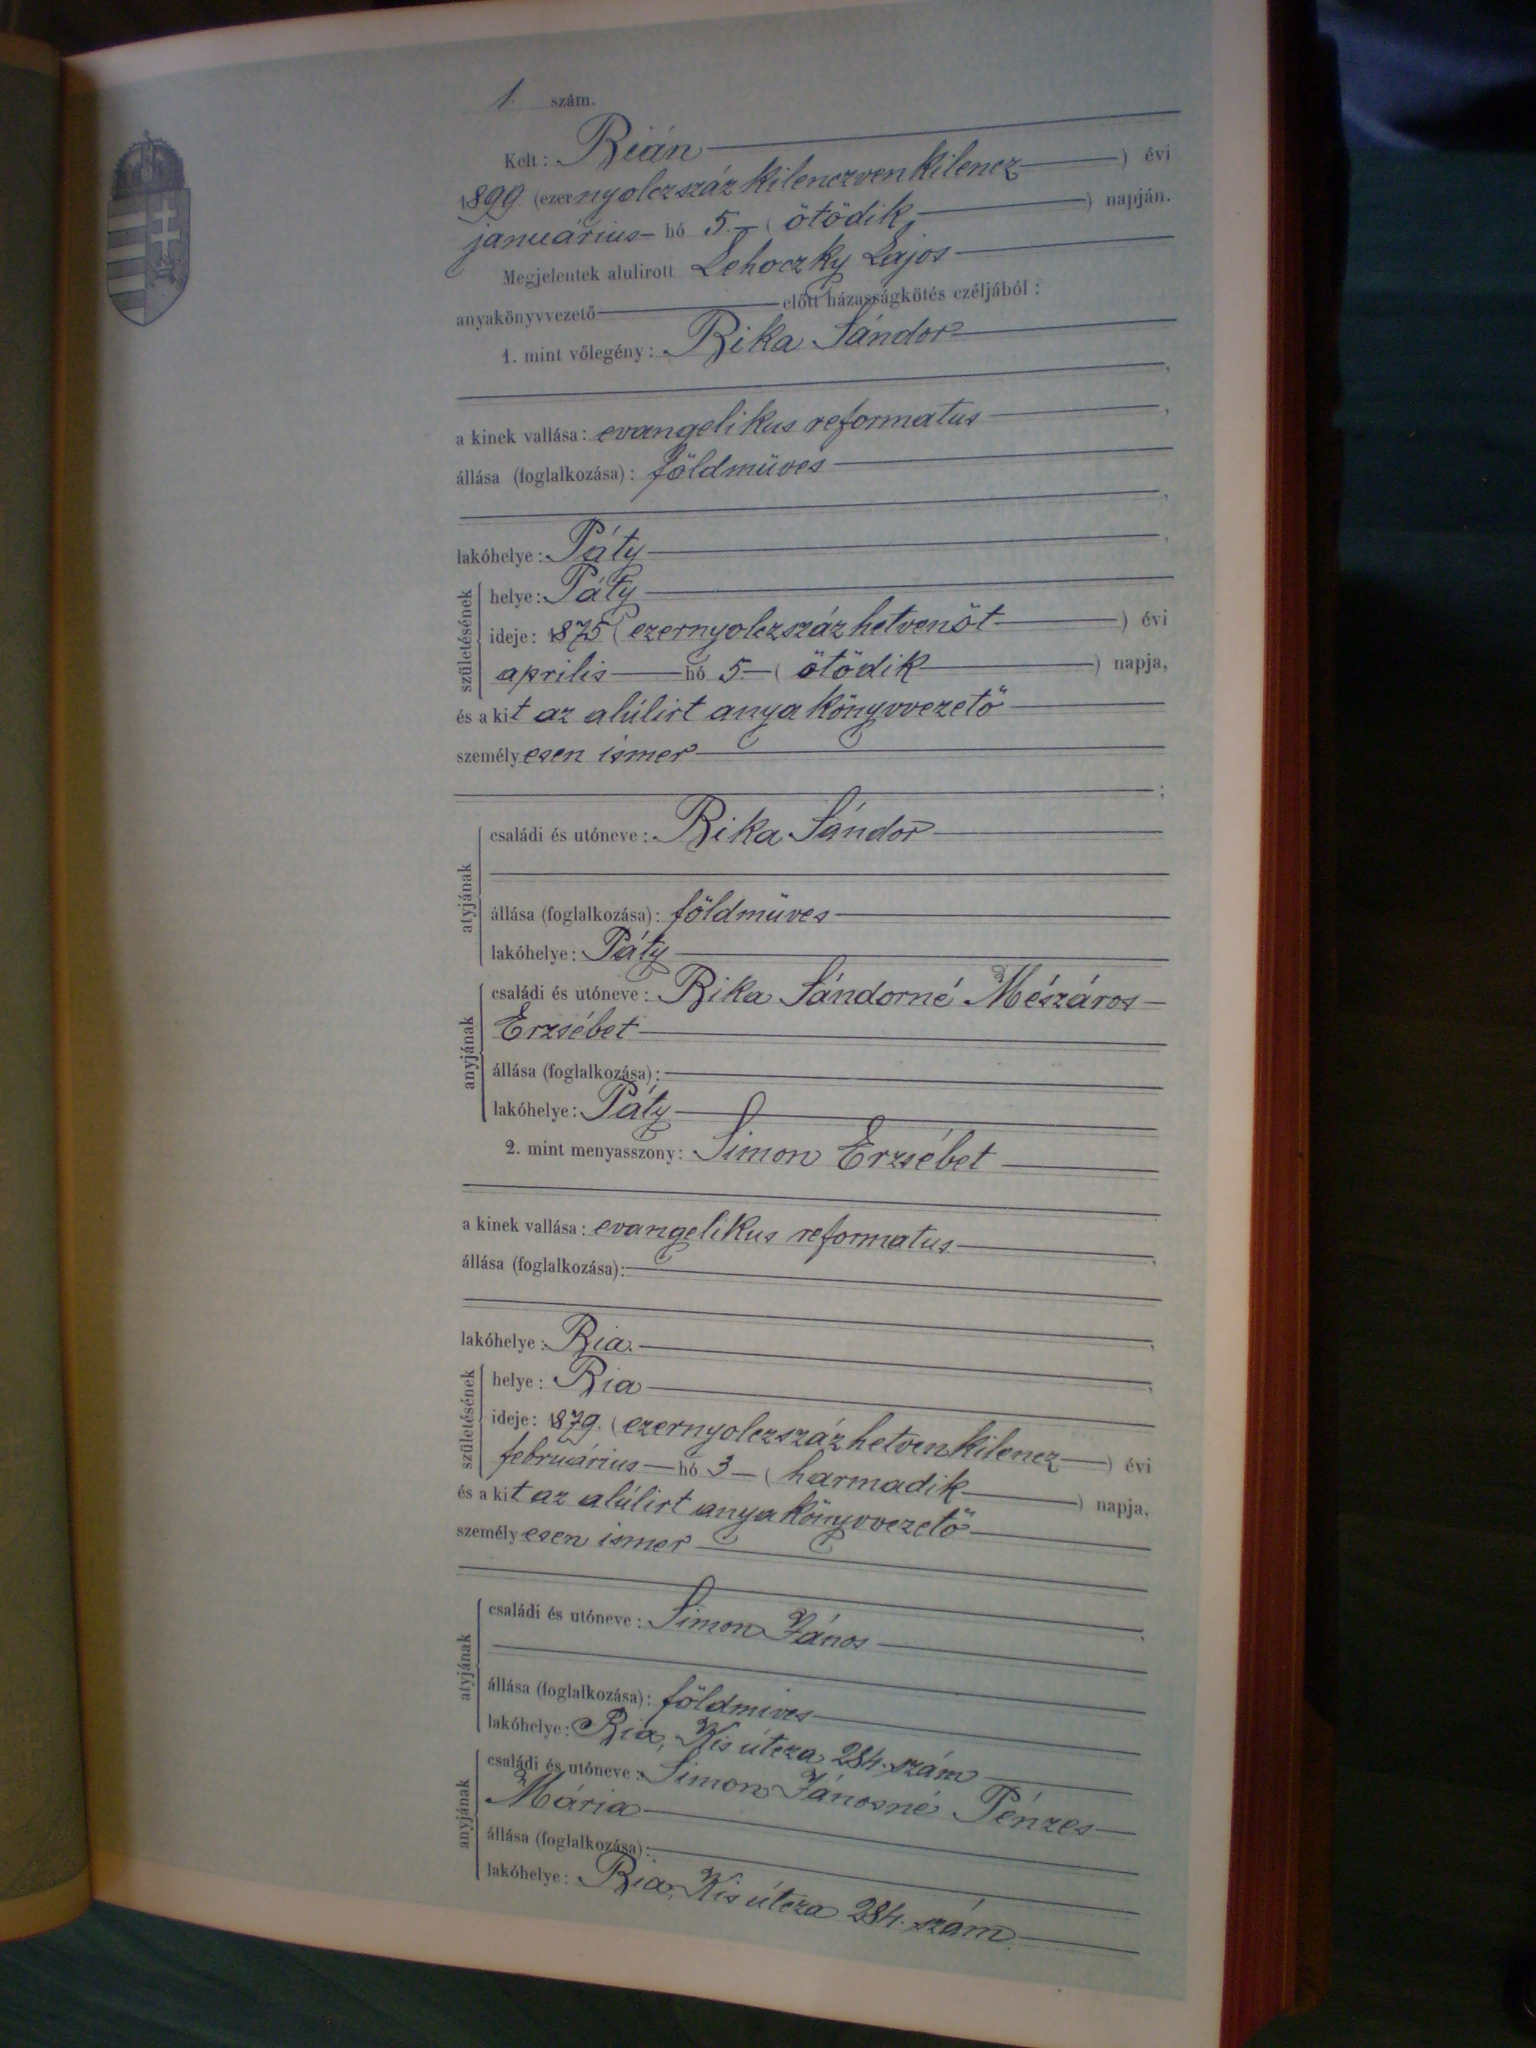 1. szám.
Kelt: Bián
1899. (ezernyolczszáz kilenczven kilencz) évi
januárius hó 5. (ötödik) napján.
Megjelentek alulirott Lehoczky Lajos
anyakönyvvezető előtt házasságkötés czéljából:
1. mint vőlegény: Bika Sándor
a kinek vallása: evangelikus reformatus,
állása (foglalkozása): földmüves,
lakóhelye: Páty,
születésének helye: Páty
ideje: 1875 (ezernyolczszáz hetvenöt) évi
aprilis hó 5 (ötödik) napja,
és a kit az alúlirt anyakönyvvezető
személyesen ismer;
atyjának családi és utóneve: Bika Sándor
állása (foglalkozása): földmüves
lakóhelye: Páty
anyjának családi és utóneve: Bika Sándorné Mészáros
Erzsébet
állása (foglalkozása):
lakóhelye: Páty
2. mint menyasszony: Simon Erzsébet
a kinek vallása: evangelikus reformatus,
állása (foglalkozása):
lakóhelye: Bia.,
születésének helye: Bia
ideje: 1879. (ezernyolczszáz hetven kilencz) évi
februárius hó 3 (harmadik) napja,
és a kit az alúlirt anyakönyvvezető
személyesen ismer;
atyjának családi és utóneve: Simon János
állása (foglalkozása): földmives
lakóhelye: Bia, Kis útcza 284. szám
anyjának családi és utóneve: Simon Jánosné Pénzes
Mária
állása (foglalkozása):
lakóhelye: Bia, Kis útcza 284. szám.